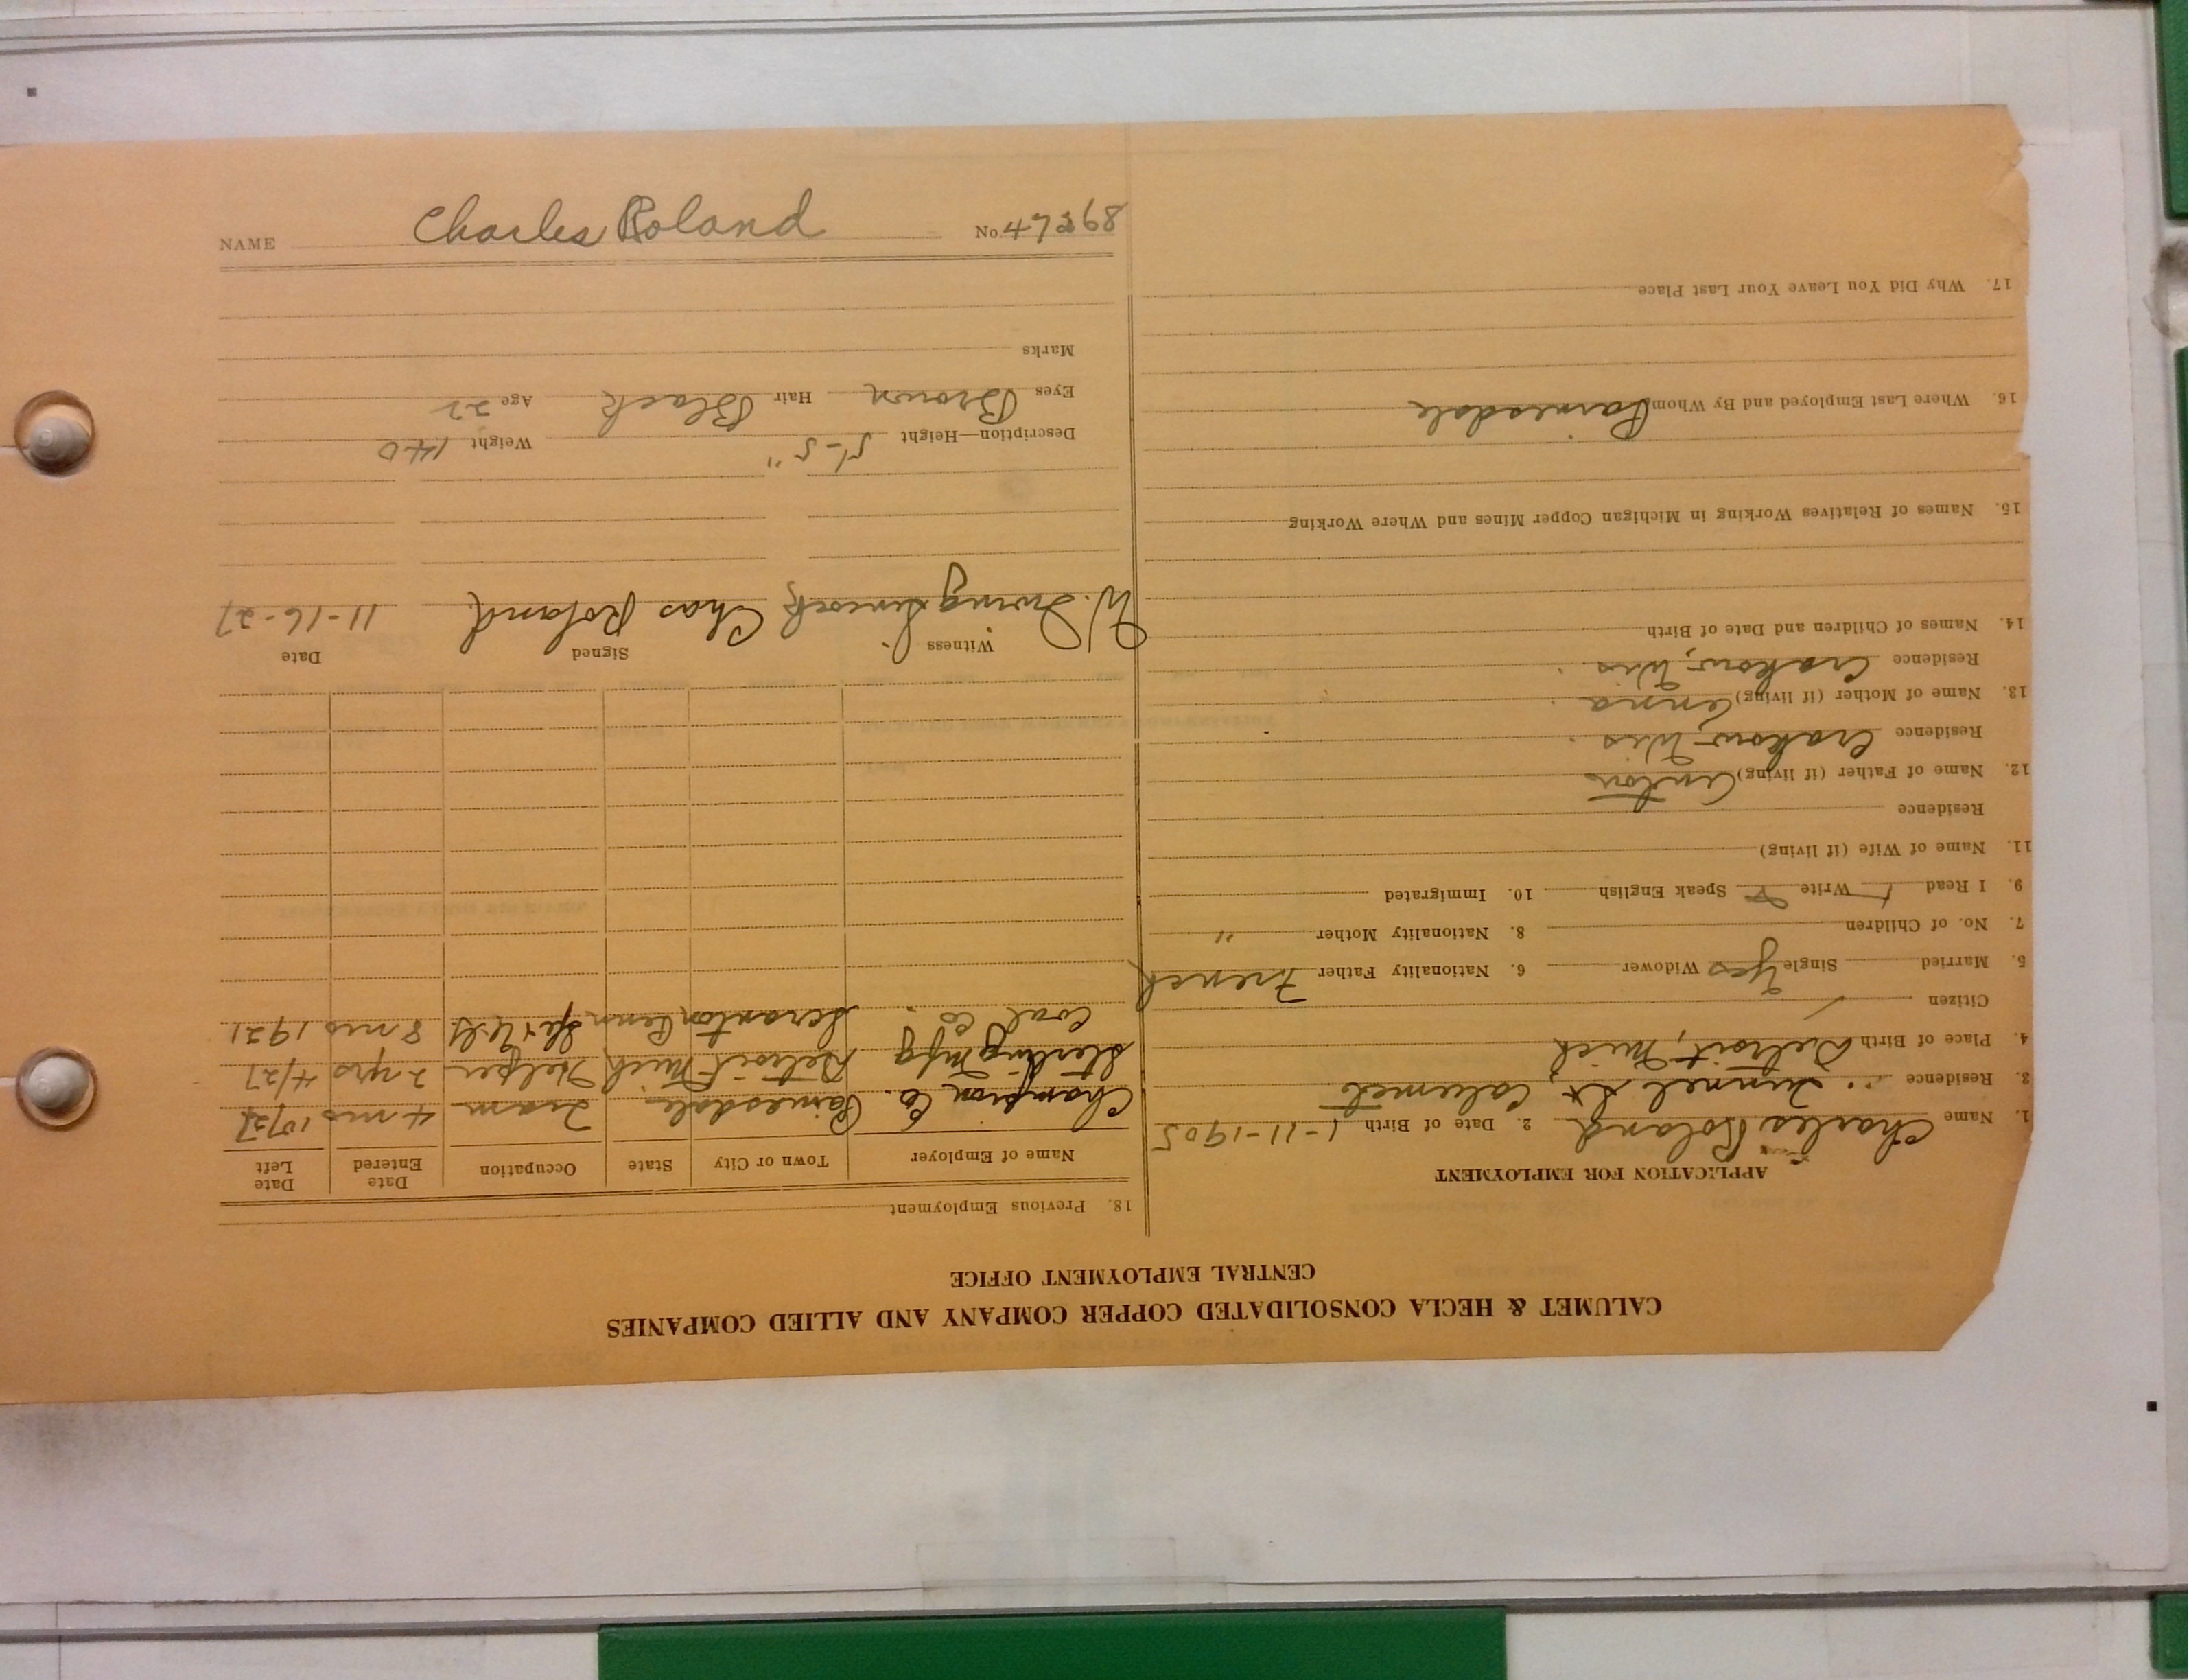 NAME Charles Roland No. 47268
CALUMET & HECLA CONSOLIDATED COPPER COMPANY AND ALLIED COMPANIES
CENTRAL EMPLOYMENT OFFICE
APPLICATION FOR EMPLOYMENT
1. Name Charles Roland 2. Date of Birth 1-11-1905
3. Residence Tunnel St Calumet
4. Place of Birth Detroit, Mich
Citizen
5. Married Single Yes Widower 6. Nationality Father French
7. No. of Children 8. Nationality Mother "
9. I Read Write Speak English 10. Immigrated
11. Name of Wife (if living)
Residence
12. Name of Father (if living) Anton
Residence Crakow, Wis
13. Name of Mother (if living) Anna
Residence Crakow, Wis
14. Names of Children and Date of Birth
15. Names of Relatives Working in Michigan Copper Mines and Where Working
16. Where Last Employed and By Whom Painesdale
17. Why Did You Leave Your Last Place
18. Previous Employment
Name of Employer Town or City State Occupation Date Entered Date Left
Champion Co. Painesdale Tram 4 mos
Sterling Mfg Detroit Mich Helper 2 yrs 4/27
Coal Co. Scranton Penn 8 mos 1921
Witness Signed Date
W. Irving Chas Roland 11-16-27
Description—Height 5'-5" Weight 140
Eyes Brown Hair Black Age 22
Marks